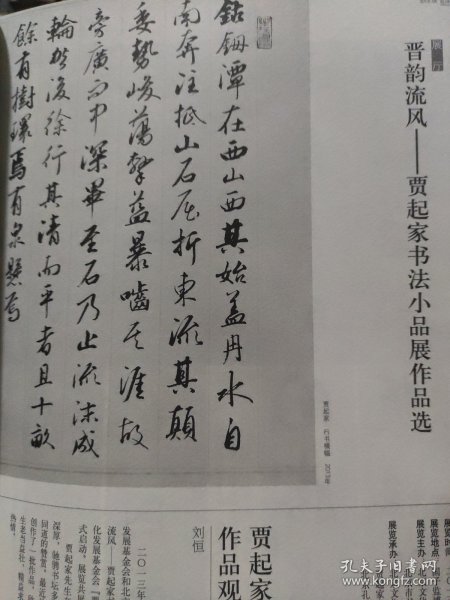 展厅
晋韵流风——贾起家书法小品展作品选
鈷鉧潭在西山西其始盖冉水自
南奔注抵山石屈折東流其顛
委勢峻蕩擊益暴嚙其涯故
旁廣而中深畢至石乃止流沫成
輪然後徐行其清而平者且十畝
餘有樹環焉有泉懸焉
贾起家 行书横幅 2013年
展览时间
展览地点
展览主办
展览承办
贾起家
作品观
刘恒
二〇一三年
发展基金会和北
流风——贾起家
化发展基金会
式启动。展览共展
贾起家先生
深厚，驰骋书坛多
同道的赞赏。最近
创作了一批作品
生老当益壮、精益求
热情。
孔夫子旧书网